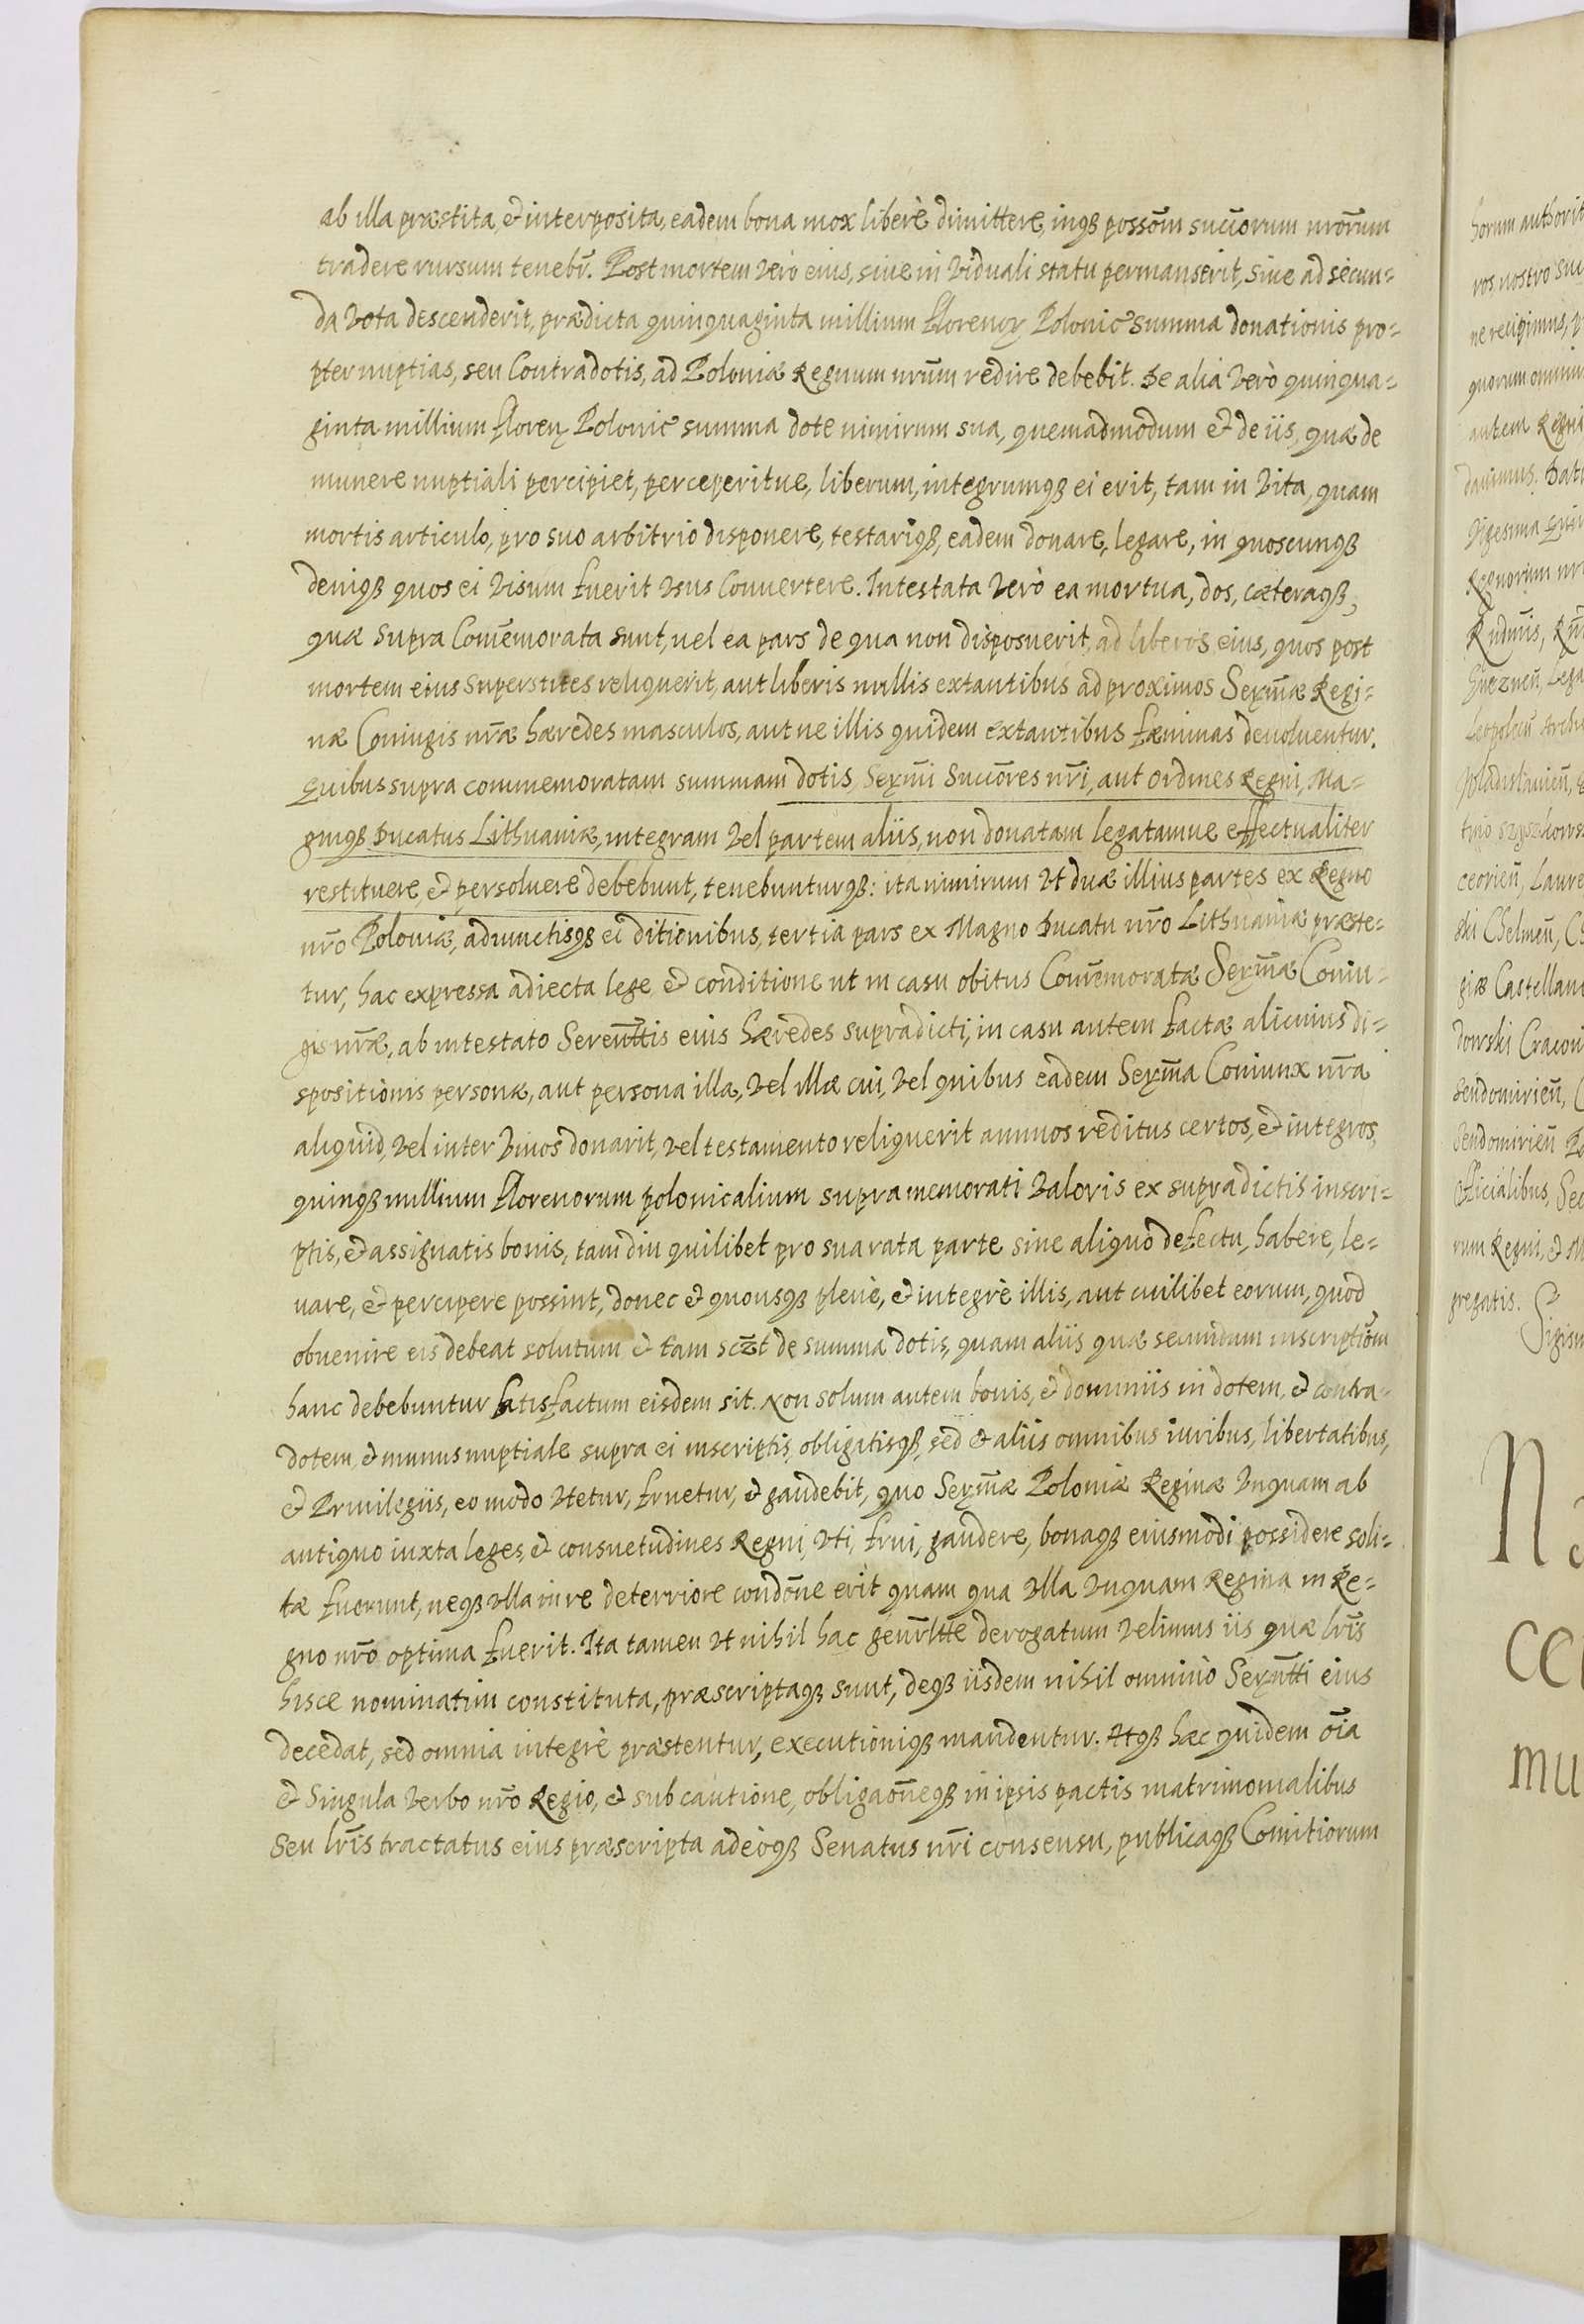 ab illa præstita, & interposita, eadem bona mox liberè dimittere, inq3 possõm succorum nrorum
tradere rursum tenebr̃. Post mortem vero eius, siue in viduali statu permanserit, siue ad secun=
da vota descenderit, prædicta quinquaginta millium florenoꝝ Polonic summa donationis pro=
pter nuptias, seu Contradotis, ad Poloniæ Regnum nrũm redire debebit. De alia verò quinqua=
ginta millium florenꝝ Polonic summa dote nimirum sua, quemadmodum & de iis, quæ de
munere nuptiali percipiet, perceperitue, liberum, integrumq3 ei erit, tam in vita, quam
mortis articulo, pro suo arbitrio disponere, testariq3, eadem donare, legare, in quoscunq3
deniq3 quos ei visum fuerit vsus Conuertere. Intestata verò ea mortua, dos, cæteraq3,
quæ supra Com̃emorata sunt, uel ea pars de qua non disposuerit, ad liberos eius, quos post
mortem eius superstites reliquerit, aut liberis nullis extantibus ad proximos Serm̃æ Regi=
næ Coniugis nr̃æ hæredes masculos, aut ne illis quidem extantibus fæminas deuoluentur.
Quibus supra commemoratam summam dotis, Serm̃i Succores nr̃i, aut ordines Regni, Ma=
gniq3 Ducatus Lithuaniæ, integram vel partem aliis, non donatam legatamue effectualiter
restituere, & persoluere debebunt, tenebunturq3: ita nimirum vt duæ illius partes ex Regno
nr̃o Poloniæ, adiunctisq3 ei ditionibus, tertia pars ex Magno Ducatu nr̃o Lithuaniæ præste=
tur, hac expressa adiecta lege & conditione ut in casu obitus Com̃emoratæ Serm̃æ Coniu=
gis nr̃æ, ab intestato Serenttis eius hæredes supradicti, in casu autem factæ alicuius di=
spositionis personæ, aut persona illa, vel illæ cui, vel quibus eadem Serm̃a Coniunx nr̃a
aliquid, vel inter viuos donarit, vel testamento reliquerit annuos reditus certos, & integros
quinq3 millium florenorum polonicalium supra memorati valoris ex supradictis inscri=
ptis, & assignatis bonis, tam diu quilibet pro sua rata parte sine aliquo defectu, habere, le=
uare, & percipere possint, donec & quousq3 plenè, & integrè illis, aut cuilibet eorum, quod
obuenire eis debeat solutum & tam sczt de summa dotis, quam aliis quæ secundum inscriptiõm
hanc debebuntur satisfactum eisdem sit. Non solum autem bonis, & dominiis in dotem, & contra=
dotem, & munus nuptiale supra ei inscriptis, obligatisq3, sed & aliis omnibus iuribus, libertatibus,
& Priuilegiis, eo modo vtetur, fruetur, & gaudebit, quo Serm̃æ Poloniæ Reginæ vnquam ab
antiquo iuxta leges, & consuetudines Regni, vti, frui, gaudere, bonaq3 eiusmodi possidere soli=
tæ fuerunt, neq3 vlla in re deterriore condõne erit quam qua vlla vnquam Regina in Re=
gno nr̃o optima fuerit. Ita tamen vt nihil hac genr̃ltte derogatum velimus iis quæ lr̃is
hisce nominatim constituta, præscriptaq3 sunt, deq3 iisdem nihil omninò Serentti eius
decedat, sed omnia integrè præstentur, executioniq3 mandentur. Atq3 hæc quidem oĩa
& Singula verbo nr̃o Regio, & sub cautione, obligaõneq3 in ipsis pactis matrimonialibus
seu lr̃is tractatus eius præscripta adeòq3 Senatus nr̃i consensu, publicaq3 Comitiorum
horum authorit
ros nostro su
quorum omniu
autem Regni
Castellan
Officialibus, Sec
rum Regni, & M
gregatis.
Sigism
N
ce
mu